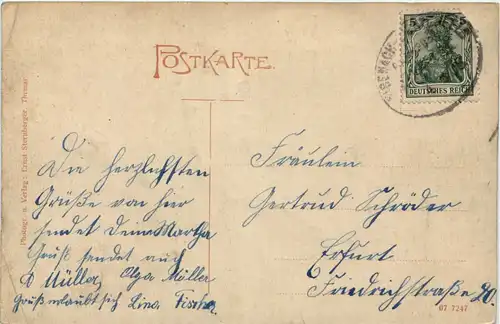 POSTKARTE.
DEUTSCHES REICH
Photogr. u. Verlag: Ernst Sternberger, Themar
Die herzlichsten
Grüße von hier
sendet Deine Martha
Gruß sendet auch
Müller, Olga Müller
Gruß erlaubt sich Lina Fischer
Fräulein
Gertrud Schröder
Erfurt
Friedrichstraße
07 7247